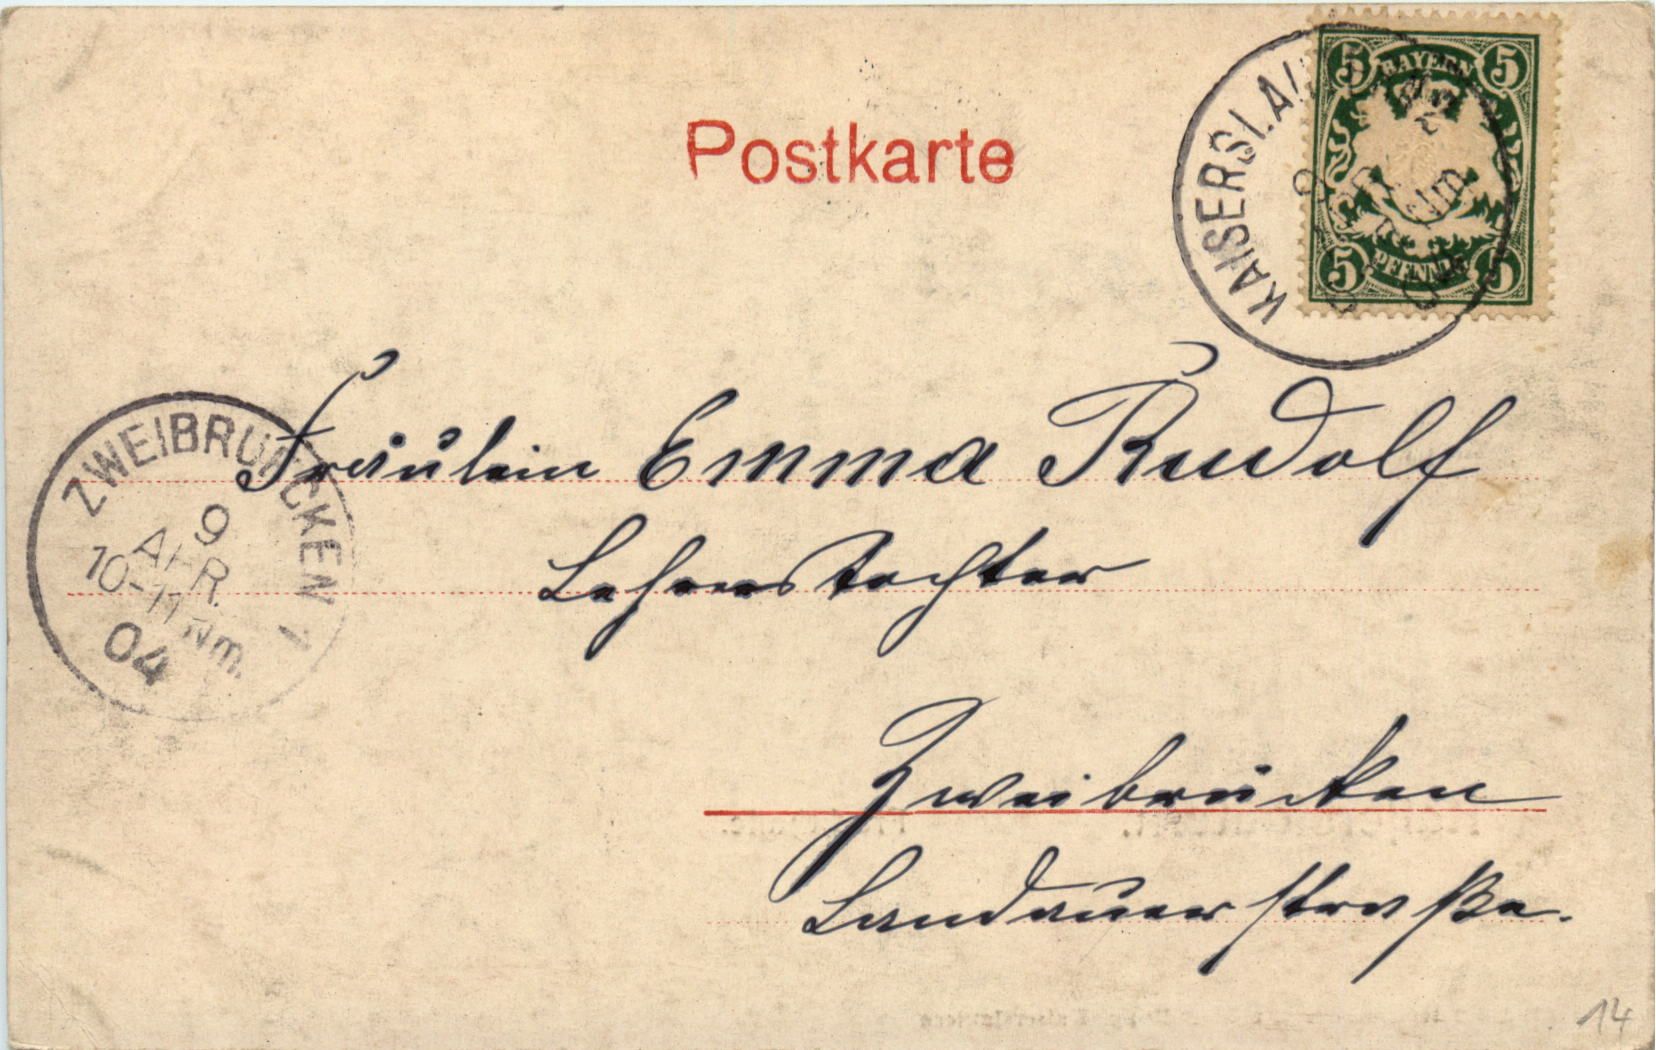 Postkarte
5 BAYERN 5
5 PFENNIG 5
KAISERSLAU
ZWEIBRÜCKEN 1
9
APR.
10-11 Nm.
04
Fräulein Emma Rudolf
Lehrerstochter
Zweibrücken
Landauerstraße.
14